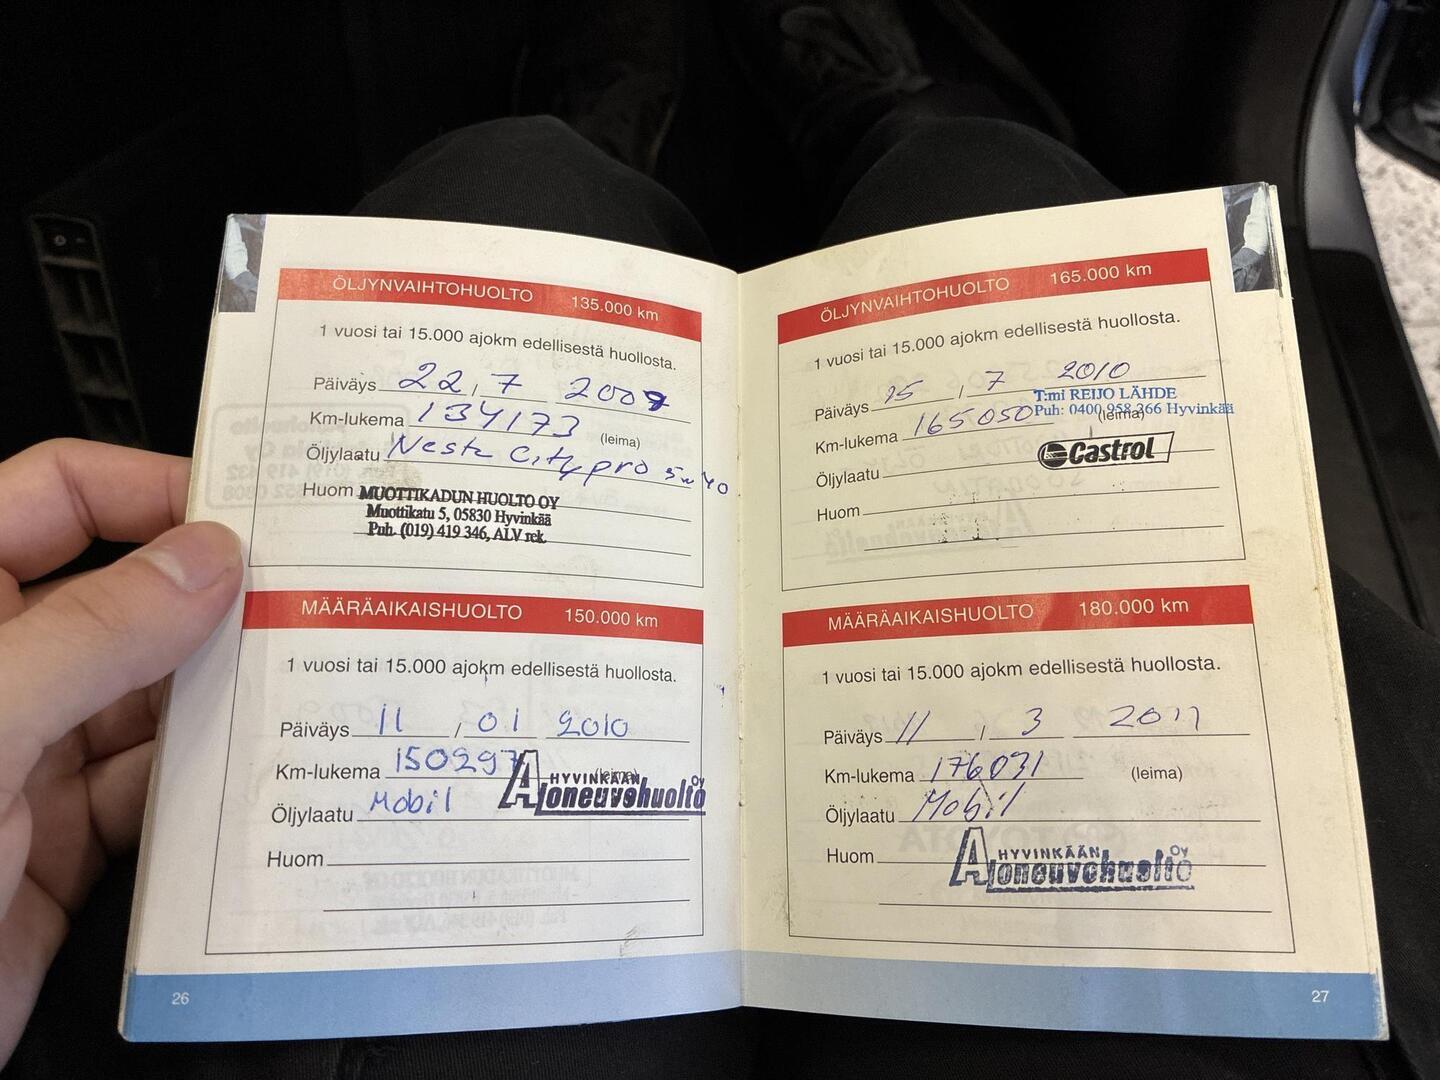 ÖLJYNVAIHTOHUOLTO 135.000 km
1 vuosi tai 15.000 ajokm edellisestä huollosta.
Päiväys 22 / 7 2009
Km-lukema 134173 (leima)
Öljylaatu Neste City pro 5w40
Huom MUOTTIKADUN HUOLTO OY
Muottikatu 5, 05830 Hyvinkää
Puh. (019) 419 346, ALV rek.
MÄÄRÄAIKAISHUOLTO 150.000 km
1 vuosi tai 15.000 ajokm edellisestä huollosta.
Päiväys 11 / 01 2010
Km-lukema 150297 (leima)
HYVINKÄÄN Ajoneuvohuolto Oy
Öljylaatu Mobil
Huom
26
ÖLJYNVAIHTOHUOLTO 165.000 km
1 vuosi tai 15.000 ajokm edellisestä huollosta.
Päiväys 15 / 7 2010
T:mi REIJO LÄHDE
Km-lukema 165050 (leima)
Puh: 0400 958 266 Hyvinkää
Castrol
Öljylaatu
Huom
MÄÄRÄAIKAISHUOLTO 180.000 km
1 vuosi tai 15.000 ajokm edellisestä huollosta.
Päiväys 11 / 3 2011
Km-lukema 176031 (leima)
Öljylaatu Mobil
Huom
HYVINKÄÄN Ajoneuvohuolto Oy
27